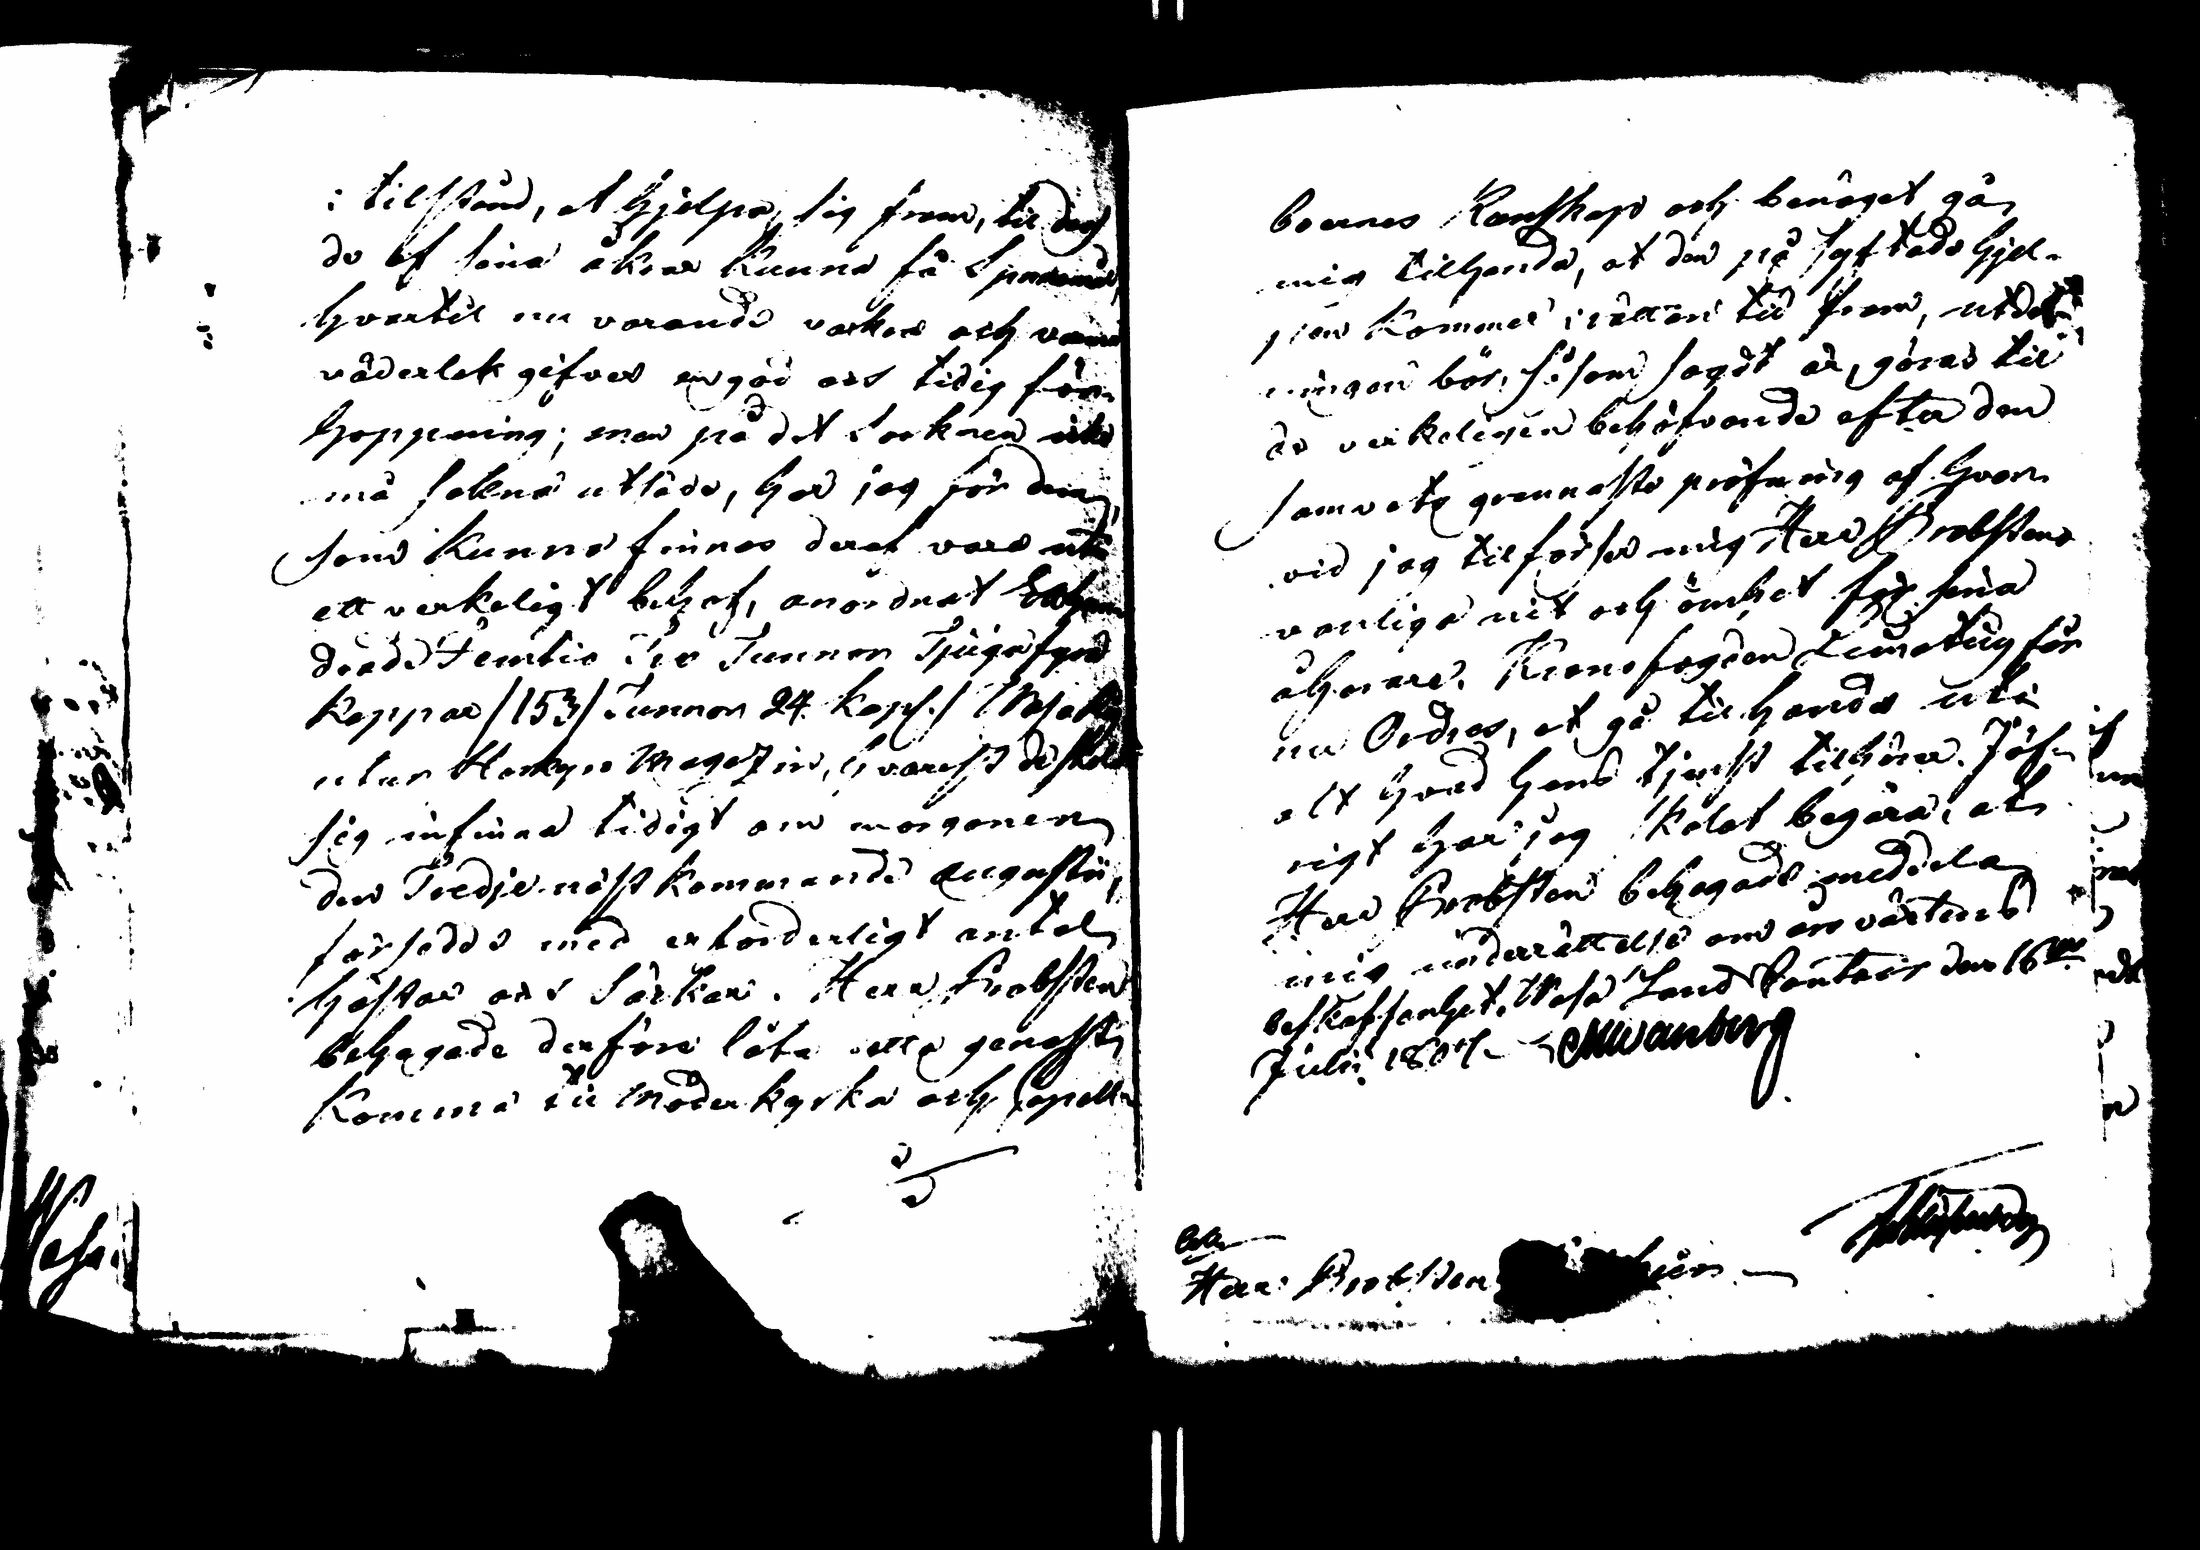 i tilstånd, at hjelpa sig fram, til dess
de af sina åkrar kunna få Spanmål,
hvartil nu varande vacker och varm
väderlek gifver en god och tidig för-
hoppning; men på det Socknen icke
må sakna utsäde, har jag för dem,
som kunna finnas deraf vara uti
ett verkeligt behof, anordnat Etthun-
drade Femtio Tre Tunnor Tjugufyra
Kappar /153/ Tunnor 24 kapp./
utur Storkyro Magazin, hvarest de skola
sig infinna tidigt om morgonen
den Tredje nästkommande Augusti,
försedde med erforderligt antal
hästar och Säckar. Herr Probsten
behagade derföre låta detta genast
komma til Moderkyrka och Capell-
boernes Kunskap och benäget gå
mig tilhanda, at den på syftade hjel-
pen kommer i rättan tid fram, utdel-
ningen bör, såsom sagdt är, göras til
de verkeligen behöfvande efter den
samvetsgrannaste pröfning af hvar-
vid jag tilförser mig Herr Probstens
vanliga nit och ömhet för sina
åhörare. Kronofogden för
nu Ordres, at gå tilhanda uti
alt hvad hans tjenst tilhörer. Jöf-
rigt har jag skolat begära, at
Herr Probsten behagade meddela
mig underrättelse om årsväxtens
beskaffenhet. Wasa Land Contoir den 16de
Julii 1807.
Herr Probsten